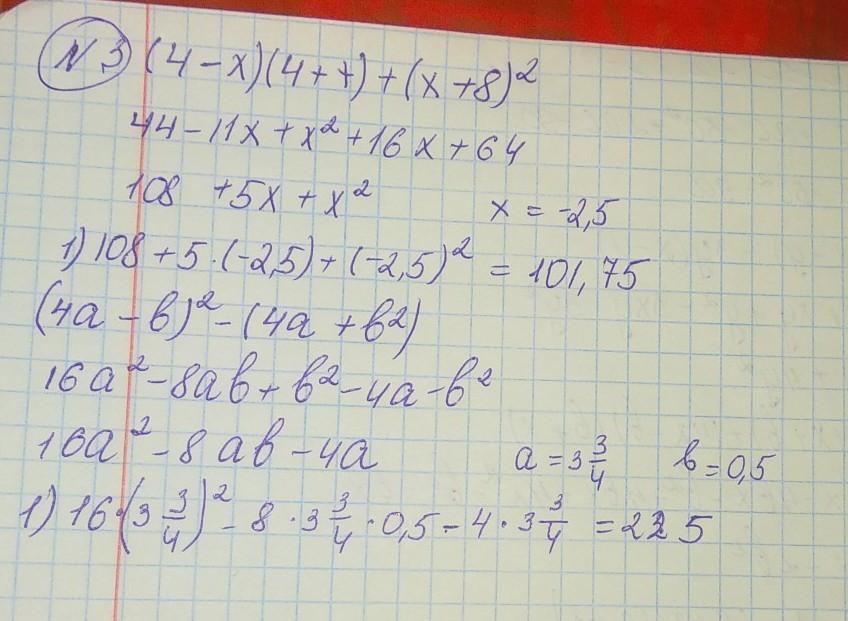 N3 (4-x)(4+7)+(x+8)²
44-11x+x²+16x+64
108 +5x+x² x = -2,5
1) 108+5·(-2,5)+(-2,5)² = 101,75
(4a-b)²-(4a+b²)
16a²-8ab+b²-4a-b²
16a²-8ab-4a a=3 3/4 b=0,5
1) 16·(3 3/4)²-8·3 3/4·0,5-4·3 3/4 =225